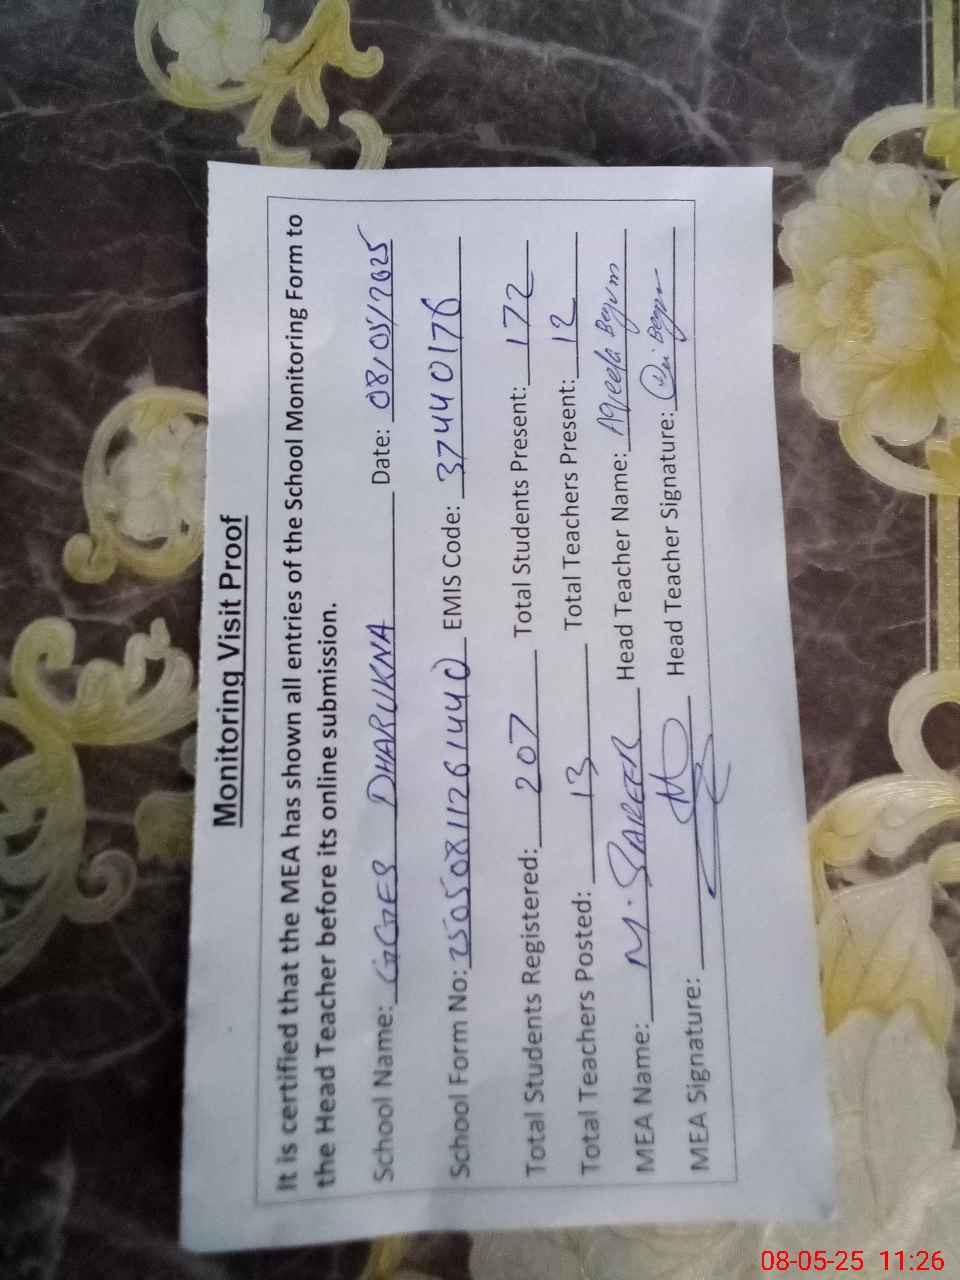 Monitoring Visit Proof
It is certified that the MEA has shown all entries of the School Monitoring Form to
the Head Teacher before its online submission.
School Name: GGES DHARUKNA Date: 08/05/2025
School Form No: 25050811261440 EMIS Code: 37440176
Total Students Registered: 207 Total Students Present: 172
Total Teachers Posted: 13 Total Teachers Present: 12
MEA Name: M. Head Teacher Name: Aqeela Begum
MEA Signature: Head Teacher Signature:
08-05-25 11:26